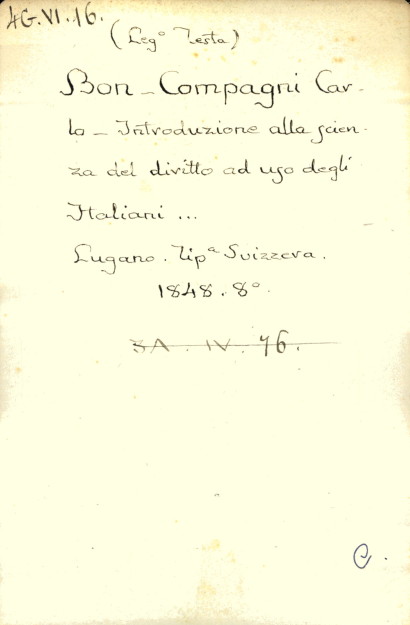 4G.VI.16.
(Leg° Testa)
Bon-Compagni Car-
lo - Introduzione alla scien-
za del diritto ad uso degli
Italiani ...
Lugano. Tipª Svizzera.
1848. 8°.
3A. IV. 76.
C.